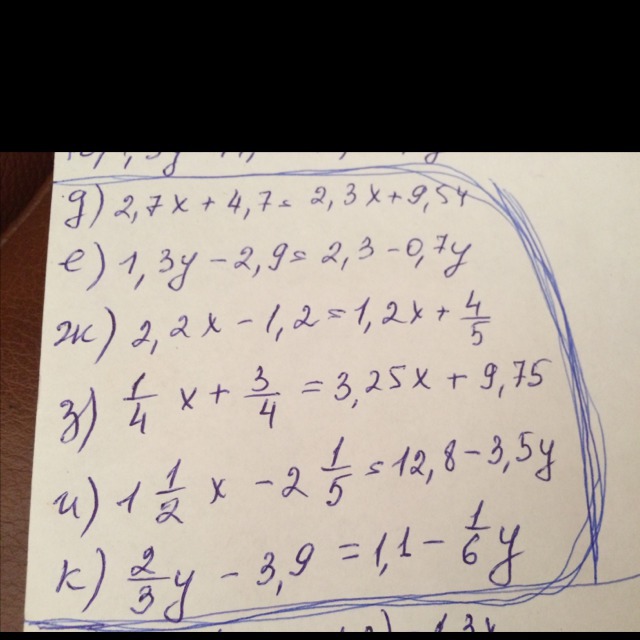 д) 2,7x + 4,7 = 2,3x + 9,54
е) 1,3y - 2,9 = 2,3 - 0,7y
ж) 2,2x - 1,2 = 1,2x + 4/5
з) 1/4 x + 3/4 = 3,25x + 9,75
и) 1 1/2 x - 2 1/5 = 12,8 - 3,5y
к) 2/3 y - 3,9 = 1,1 - 1/6 y